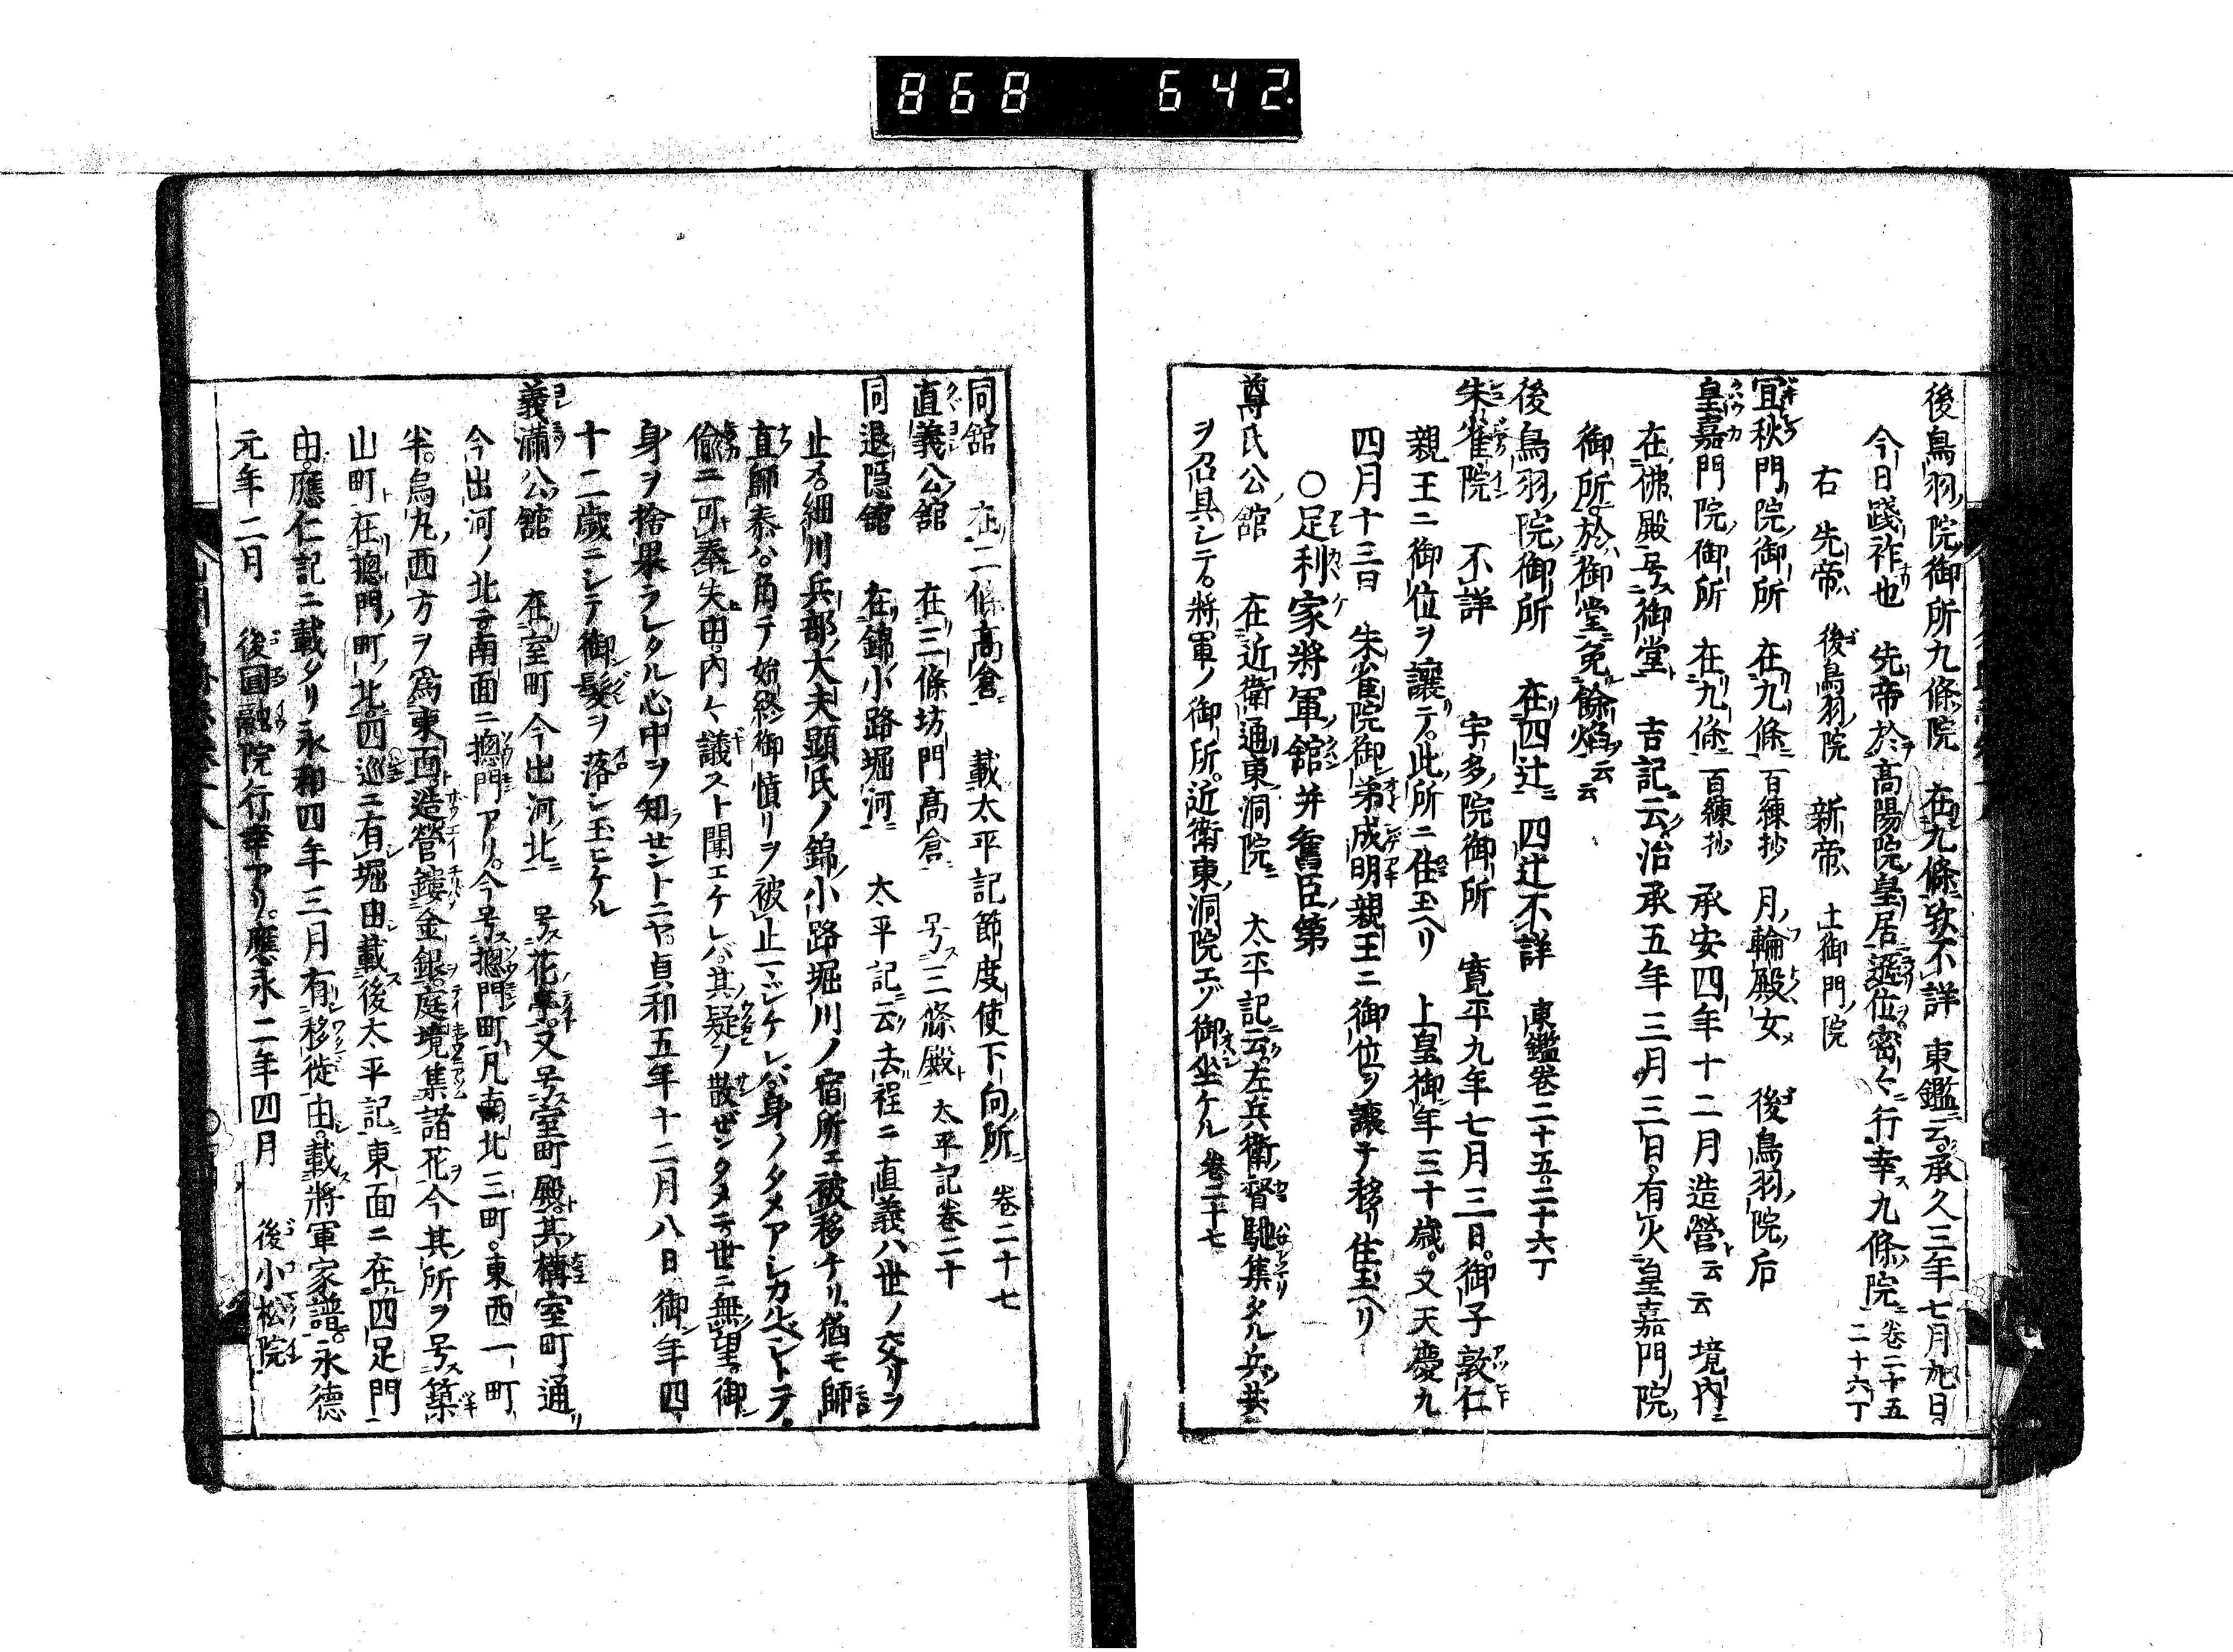 868 642.
後鳥羽院御所九條院 在九條欤不詳 東鑑云承久三年七月九日。
今日踐祚也 先帝於高陽院皇居遜位密々行幸九條院 卷二十五 二十六丁
右 先帝 後鳥羽院 新帝 土御門院
宜秋門院御所 在九條 百練抄 月輪殿女 後鳥羽院后
皇嘉門院御所 在九條 百練抄 承安四年十二月造營云云 境内
在佛殿号御堂 吉記云治承五年三月三日。有火皇嘉門院
御所。於御堂免餘焰云云
後鳥羽院御所 在四辻 四辻不詳 東鑑卷二十五。二十六丁
朱雀院 不詳 宇多院御所 寛平九年七月三日。御子敦仁
親王ニ御位ヲ讓テ。此所ニ住玉ヘリ 上皇御年三十歳。又天慶九
四月十三日 朱雀院御弟成明親王ニ御位ヲ讓テ移リ住玉ヘリ
○足利家將軍舘并舊臣第
尊氏公舘 在近衛通東洞院 太平記云。左兵衛督馳集タル兵共
ヲ召具シテ。將軍ノ御所。近衛東洞院エゾ御坐ケル 卷二十七
同舘 在二條高倉 載太平記節度使下向所 卷二十七
直義公舘 在三條坊門高倉 号三條殿 太平記卷二十
同退隠舘 在錦小路堀河 太平記云去程ニ直義ハ世ノ交リヲ
止テ。細川兵部大夫顕氏ノ錦小路堀川ノ宿所エ被移ケリ。猶モ師
直師泰ハ。角テ始終御憤リヲ被止マジケレバ。身ノタメアシカルベシトテ。
偷ニ可奉失由。内々議スト聞エケレバ。其疑ヲ散ゼンタメニ。世ニ無望。御
身ヲ捨果ラレタル心中ヲ知セントニヤ。貞和五年十二月八日御年四
十二歳ニシテ御髮ヲ落シ玉ヒケル
義滿公舘 在室町今出河北 号花亭。又号室町殿。其構室町通
今出河ノ北ニテ。南面ニ摠門アリ。今号摠門町。凡南北三町。東西一町
半。烏丸西方ヲ爲東面。造營鏤金銀。庭境集諸花今其所ヲ号築
山町 在摠門町北。四巡ニ有堀由載後太平記東面ニ在四足門
由。應仁記ニ載タリ永和四年三月有移徙由。載將軍家譜。永德
元年二月 後圓融院行幸アリ。應永二年四月 後小松院